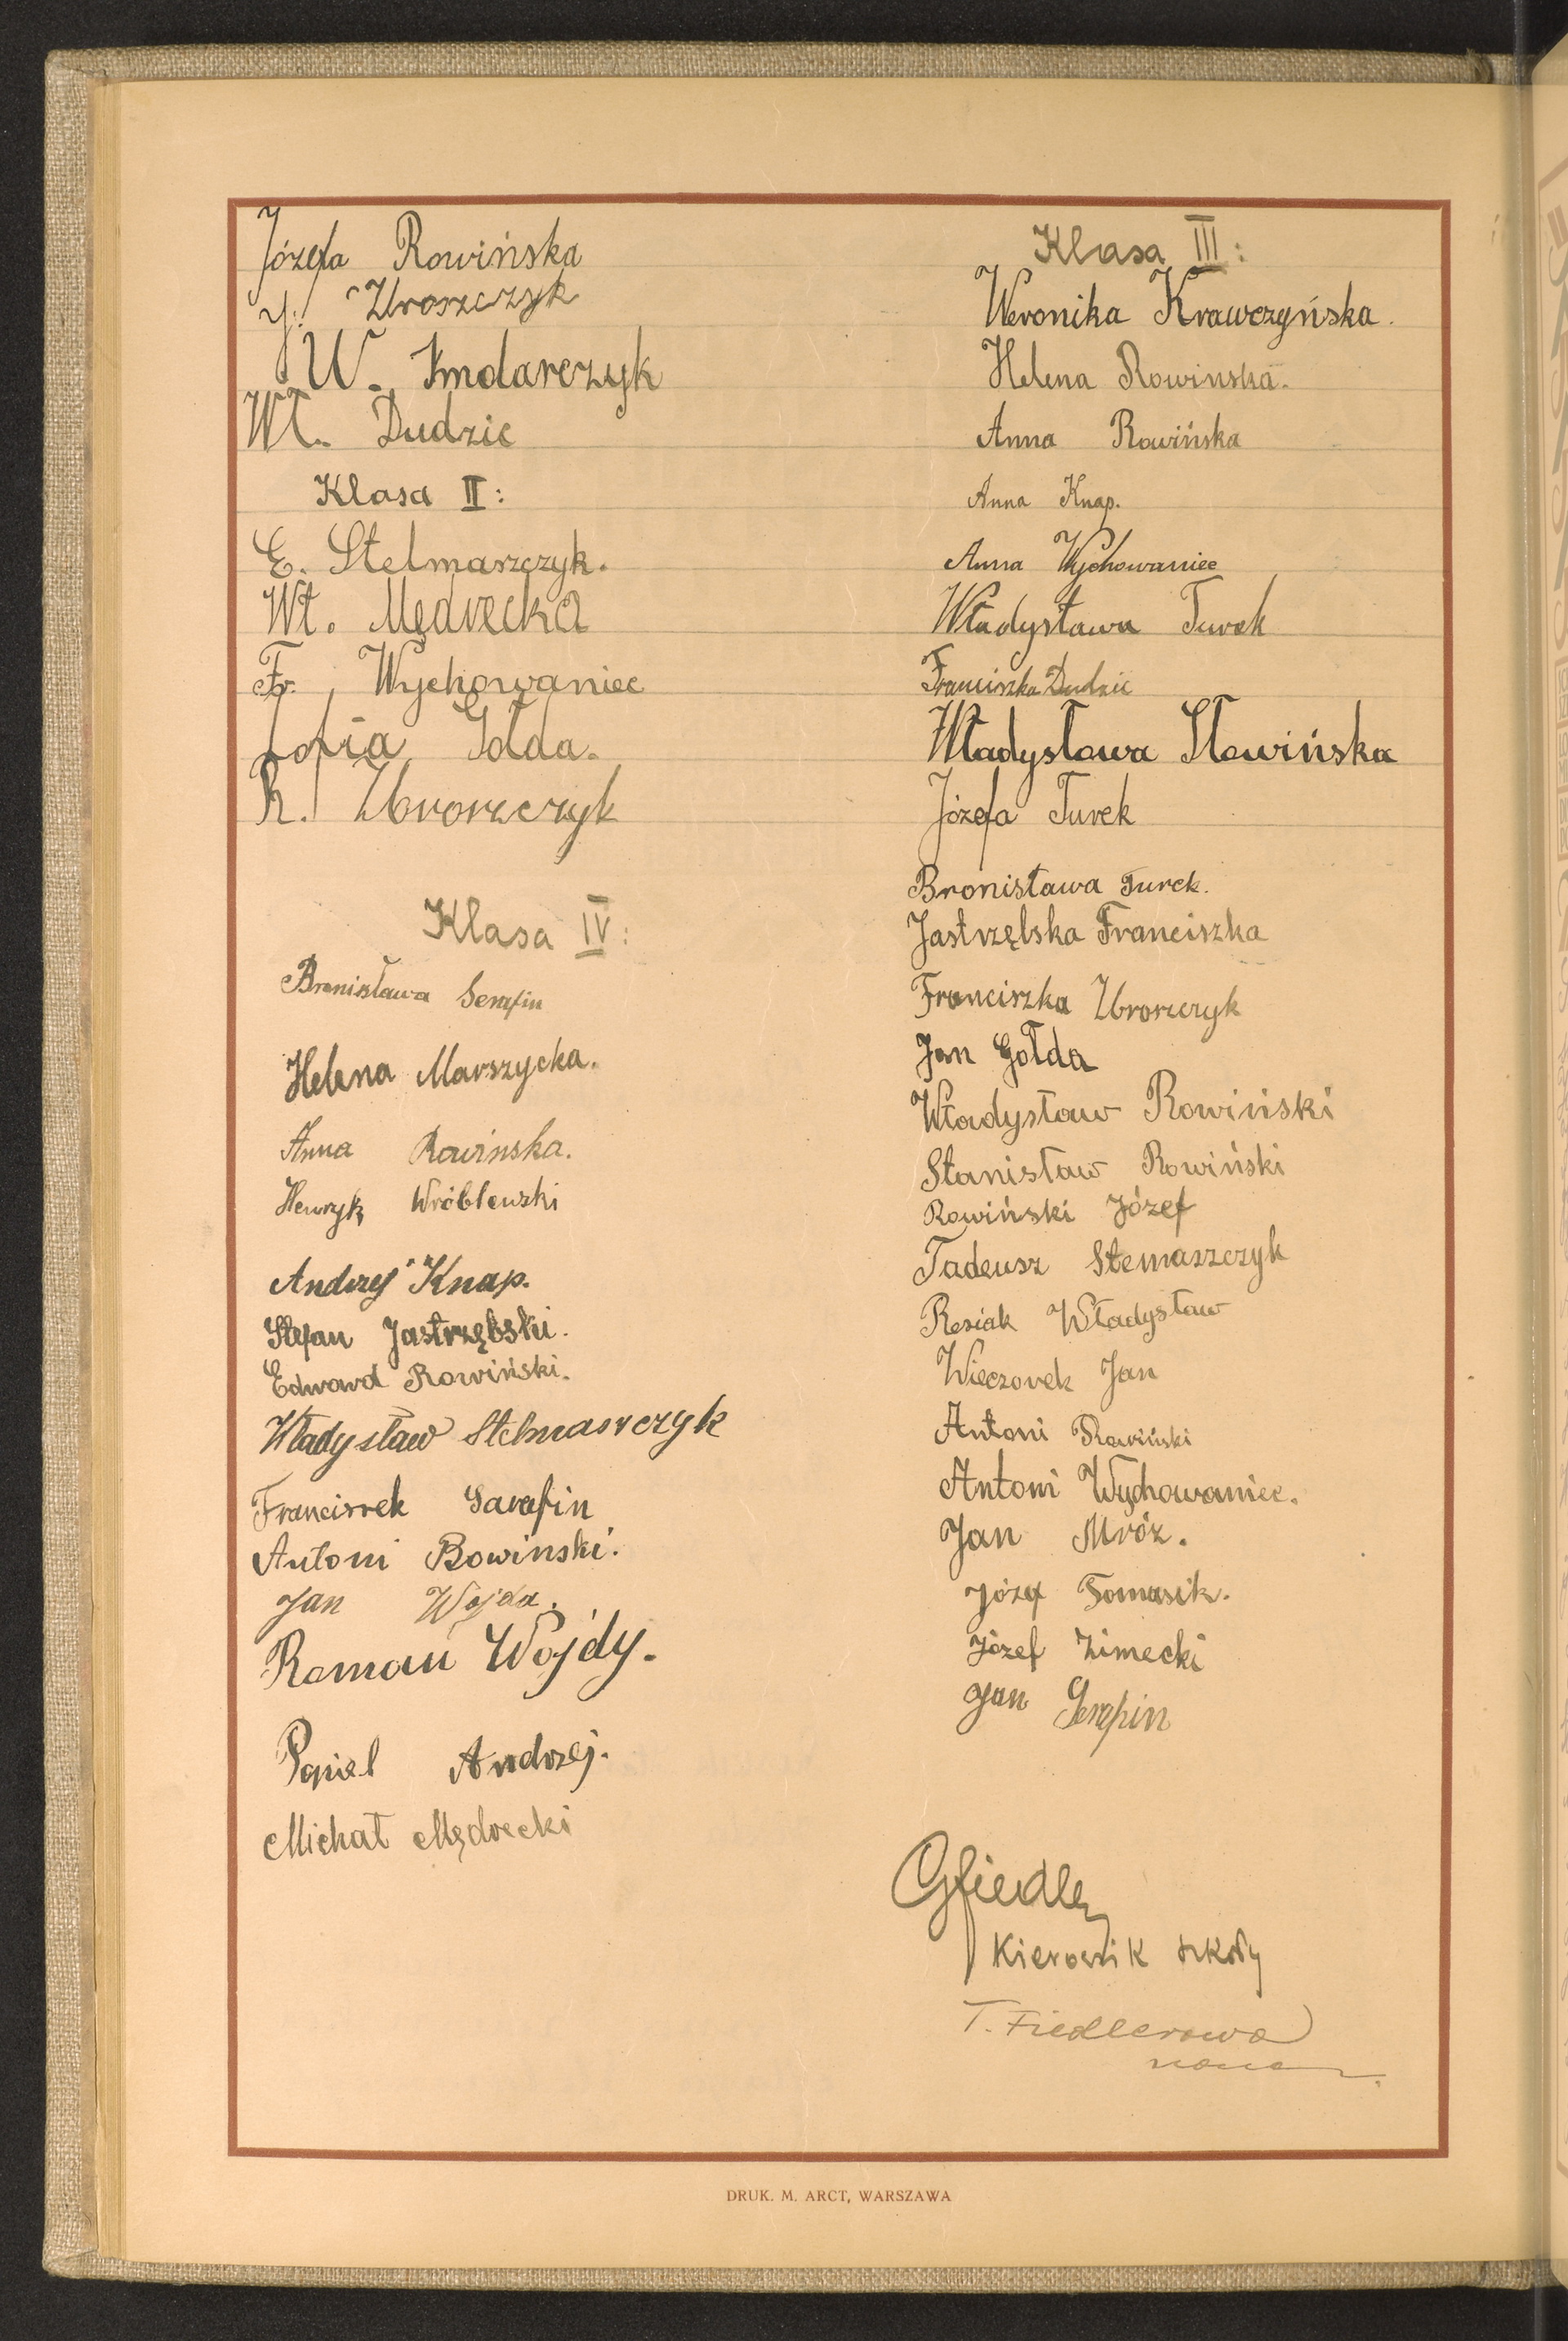 Józefa Rowińska
J. Zbroszczyk
W. Kmdarczyk
Wł. Dudzic
Klasa II:
E. Stelmaszczyk.
Wł. Mędrecka
Fr. Wychowaniec
Zofia Gołda.
R. Zbroszczyk
Klasa IV:
Bronisława Serafin
Helena Marszycka.
Anna Rowinska.
Henryk Wróblewski
Andrzej Knap.
Stefan Jastrzębski.
Edward Rowiński.
Władysław Stelmaszczyk
Franciszek Sarafin
Antoni Rowinski.
Jan Wojda.
Roman Wojdy.
Popiel Andrzej.
Michał Mędrecki
Klasa III:
Weronika Krawczyńska.
Helena Rowinska.
Anna Rowińska
Anna Knap.
Anna Wychowaniec
Władysława Turek
Franciszka Dudzic
Władysława Sławińska
Józefa Turek
Bronisława Turek.
Jastrzębska Franciszka
Franciszka Zbroszczyk
Jan Gołda
Władysław Rowiński
Stanisław Rowiński
Rowiński Józef
Tadeusz Stemaszczyk
Resiak Władysław
Wieczorek Jan
Antoni Rowiński
Antoni Wychowaniec.
Jan Mróz.
Józef Tomasik.
Józef Zimecki
Jan Serafin
GFiedler
Kierownik szkoły
T. Fiedlerowa
naucz.
DRUK. M. ARCT, WARSZAWA